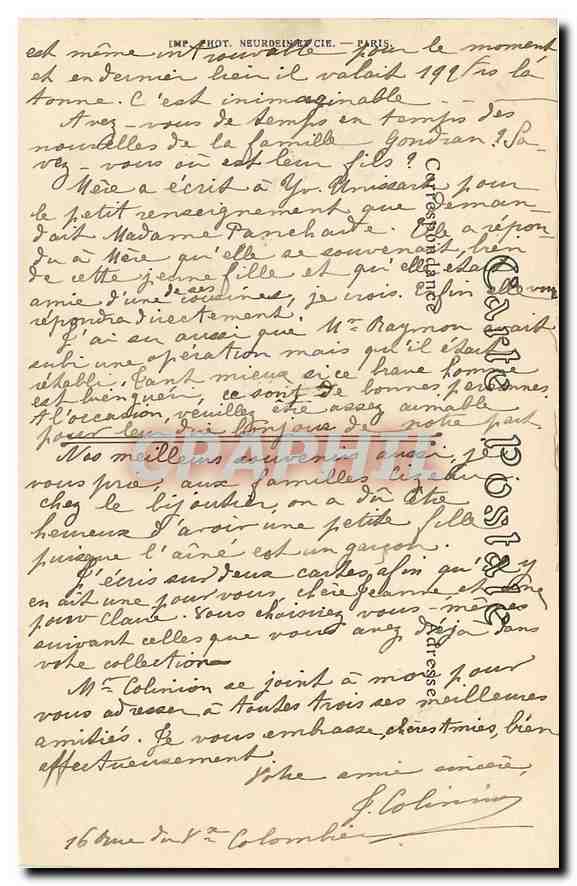 IMP. PHOT. NEURDEIN ET CIE. — PARIS.
est même introuvable pour le moment
et en dernier lieu il valait 199 frs la
tonne. C'est inimaginable - -
Avez-vous de temps en temps des
nouvelles de la famille Gondran ? Sa-
vez-vous où est leur fils ?
Mère a écrit à Yv. pour
le petit renseignement que deman-
dait Madame Panchaude. Elle a répon-
du à Mère qu'elle se souvenait bien
de cette jeune fille et qu'elle était
amie d'une de ses cousines, je crois. Enfin elle vous
répondra directement.
J'ai su aussi que Mr Raymon avait
subi une opération mais qu'il était
rétabli. Tant mieux si ce brave homme
est bien guéri, ce sont de bonnes personnes.
A l'occasion, veuillez être assez aimable
pour leur dire bonjour de notre part
Nos meilleurs souvenirs aussi, je
vous prie, aux familles
chez le bijoutier, on a dû être
heureux d'avoir une petite fille
puisque l'aîné est un garçon.
J'écris sur deux cartes afin qu'il y
en ait une pour vous, chère Jeanne, et une
pour Claire. Vous choisirez vous-mêmes
suivant celles que vous avez déjà dans
votre collection
Mr Colinion se joint à moi pour
vous adresser à toutes trois ses meilleures
amitiés. Je vous embrasse, chères Amies, bien
affectueusement
Votre amie sincère,
J. Colinion
16 Rue du Vx Colombier
Carte Postale
Correspondance
Adresse
CARTE GRAPHIE